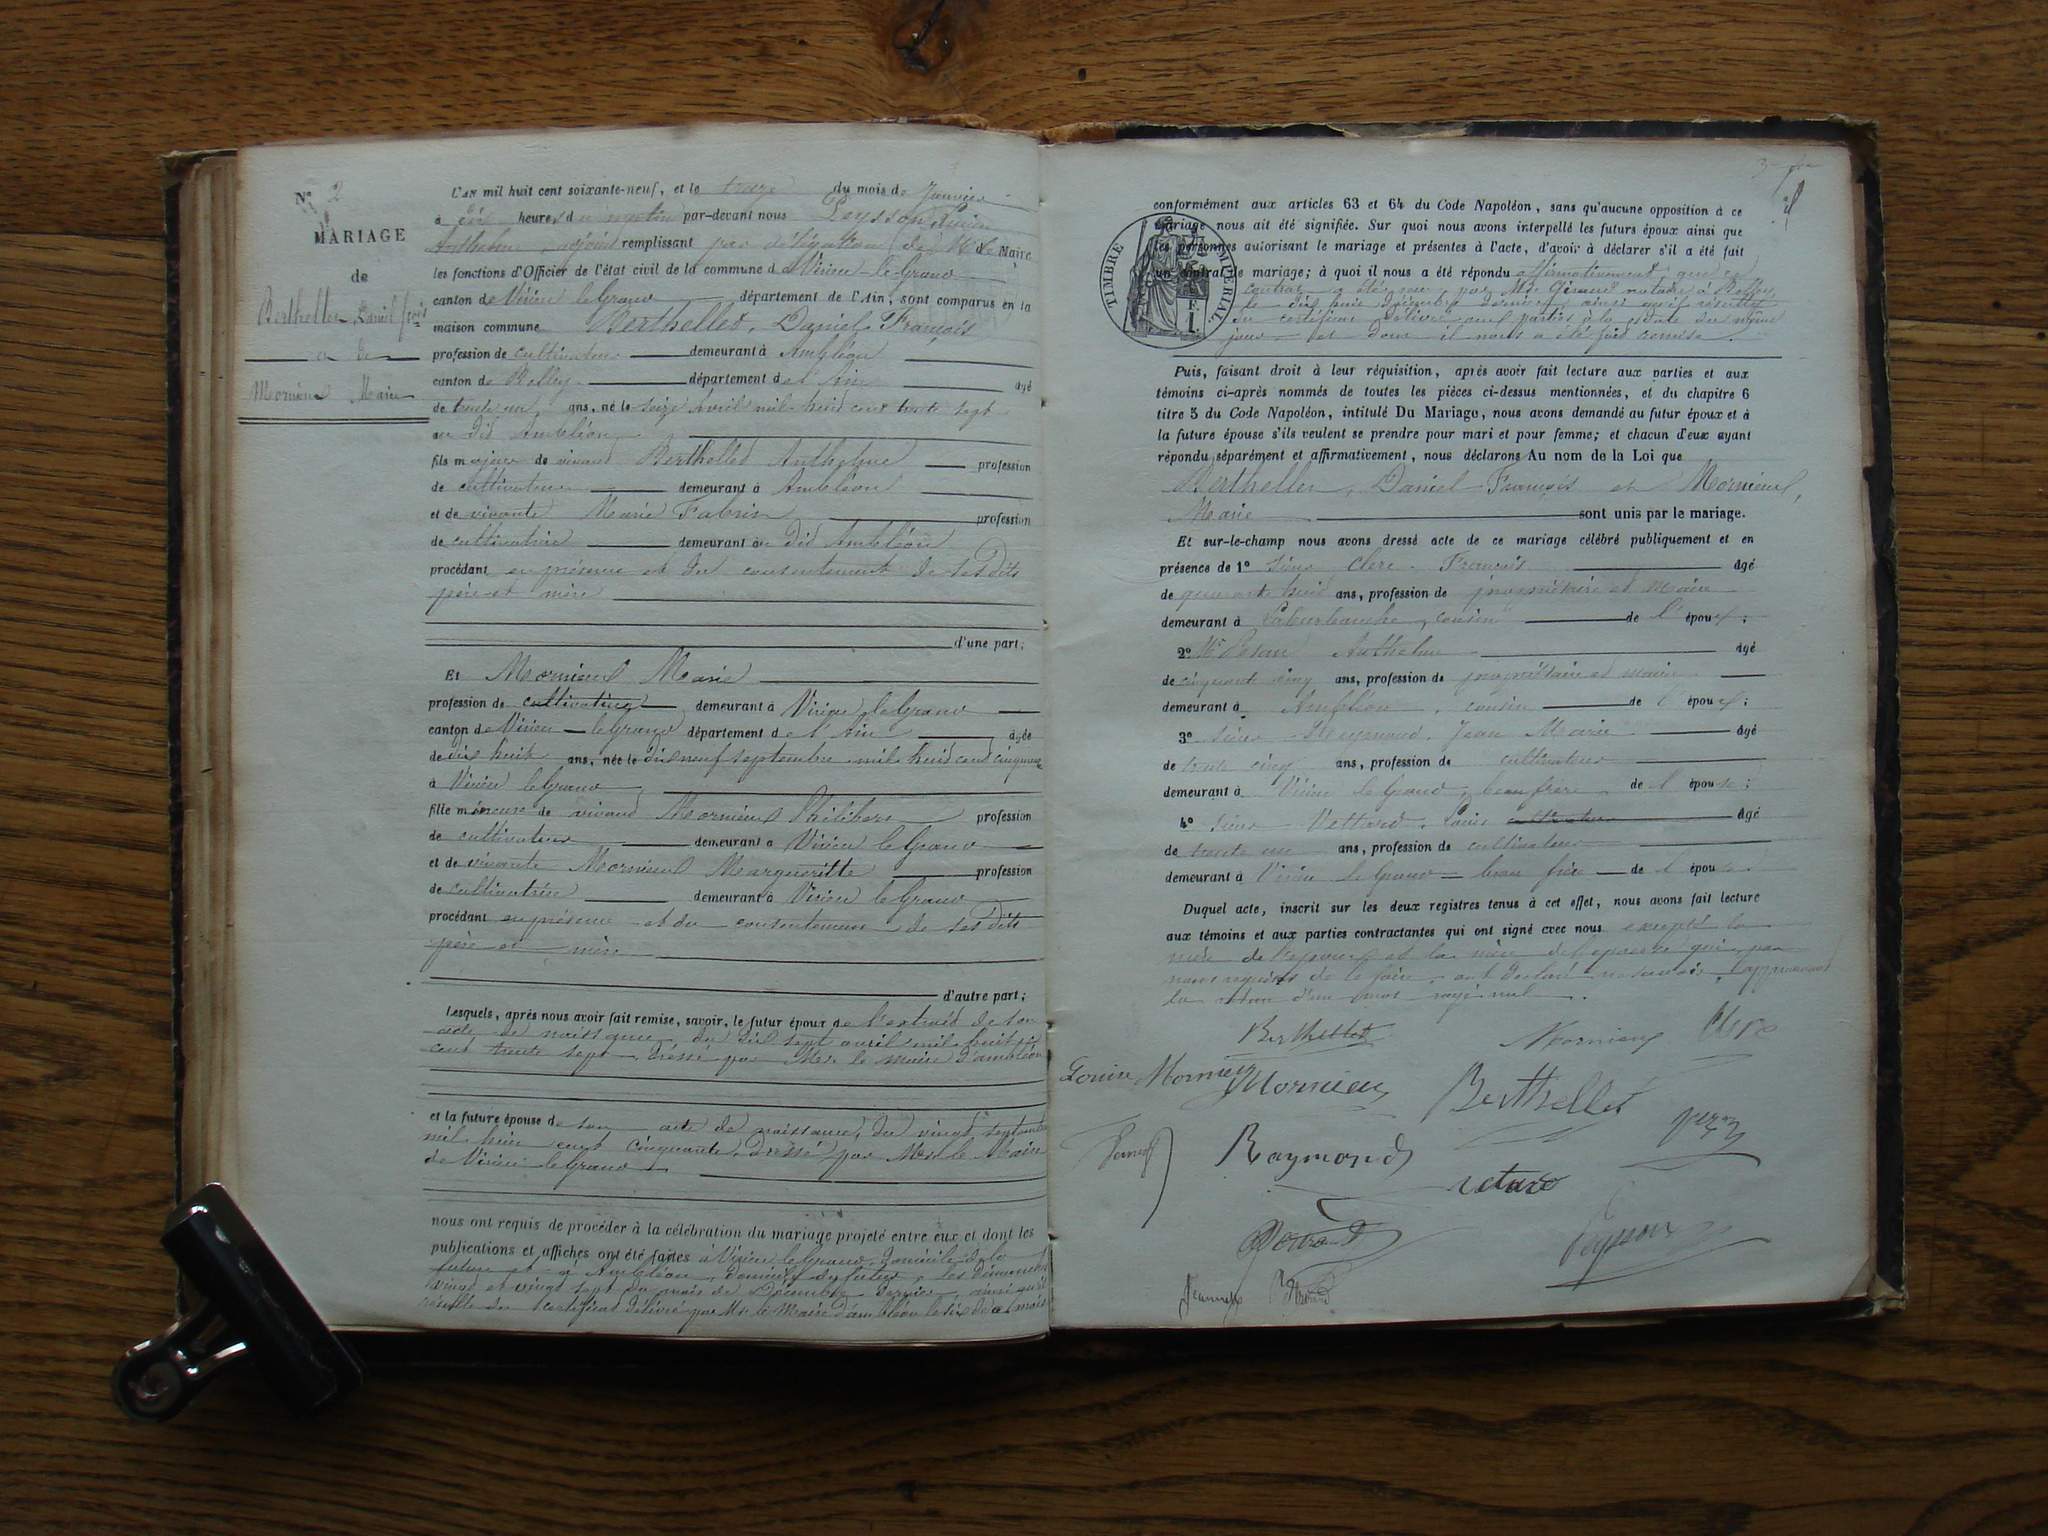 N° 2
MARIAGE
de
Berthellet Daniel frçois
et de
Mornieux Marie
L'AN mil huit cent soixante-neuf, et le treize du mois de Janvier
à dix heures du matin par-devant nous Peysson
Anthelme, adjoint remplissant par délégation de Mr le Maire
les fonctions d'Officier de l'état civil de la commune de Virieu-le-Grand
canton de Virieu le Grand département de l'Ain, sont comparus en la
maison commune Berthellet, Daniel François
profession de cultivateur demeurant à Ambléon
canton de Belley département de l'Ain âgé
de trente un ans, né le seize Avril mil huit cent trente sept
au dit Ambléon
fils majeur de vivant Berthellet Anthelme profession
de cultivateur demeurant à Ambléon
et de vivante Marie Fabrin profession
de cultivatrice demeurant au dit Ambléon
procédant en présence et du consentement de ses dits
père et mère
d'une part;
Et Mornieux Marie
profession de cultivatrice demeurant à Virieu le Grand
canton de Virieu-le-Grand département de l'Ain âgée
de dix huit ans, née le dix neuf septembre mil huit cent cinquante
à Virieu le Grand
fille mineure de vivant Mornieux Philibert profession
de cultivateur demeurant à Virieu le Grand
et de vivante Mornieux Margueritte profession
de cultivatrice demeurant à Virieu le Grand
procédant en présence et du consentement de ses dits
père et mère
d'autre part;
Lesquels, après nous avoir fait remise, savoir, le futur époux de l'extrait de son
acte de naissance du dix sept avril mil huit
cent trente sept, dréssé par Mr. le maire d'ambléon
et la future épouse de son acte de naissance, du vingt septembre
mil huit cent cinquante, dressé par Mr le Maire
de Virieu le Grand
nous ont requis de procéder à la célébration du mariage projeté entre eux et dont les
publications et affiches ont été faites à Virieu le Grand, domicile de la
future et à Ambléon, domicile du futur, les dimanches
vingt et vingt sept du mois de Décembre dernier, ainsi qu'il
résulte du certificat délivré par Mr le Maire d'ambléon le dix de ce mois
conformément aux articles 63 et 64 du Code Napoléon, sans qu'aucune opposition à ce
mariage nous ait été signifiée. Sur quoi nous avons interpellé les futurs époux ainsi que
les personnes autorisant le mariage et présentes à l'acte, d'avoir à déclarer s'il a été fait
un contrat de mariage; à quoi il nous a été répondu affirmativement que ce
contrat a été reçu par Me Giraud notaire à Belley
le dix huit Décembre dernier, ainsi qu'il résulte
du certificat délivré aux parties à la date du même
jour et dont il nous a été fait remise.
TIMBRE IMPERIAL
1 F.
Puis, faisant droit à leur réquisition, après avoir fait lecture aux parties et aux
témoins ci-après nommés de toutes les pièces ci-dessus mentionnées, et du chapitre 6
titre 5 du Code Napoléon, intitulé Du Mariage, nous avons demandé au futur époux et à
la future épouse s'ils veulent se prendre pour mari et pour femme; et chacun d'eux ayant
répondu séparément et affirmativement, nous déclarons Au nom de la Loi que
Berthellet, Daniel François et Mornieux,
Marie sont unis par le mariage.
Et sur-le-champ nous avons dressé acte de ce mariage célébré publiquement et en
présence de 1° sieur Clerc François âgé
de quarante huit ans, profession de propriétaire et Maire
demeurant à cousin de l'époux;
2° Mr Anthelme âgé
de cinquante cinq ans, profession de propriétaire et maire
demeurant à Ambléon, cousin de l'époux;
3° sieur Reymond, Jean Marie âgé
de trente cinq ans, profession de cultivateur
demeurant à Virieu le Grand, beau frère de l'épouse;
4° sieur Vettard, Louis cultivateur âgé
de trente un ans, profession de cultivateur
demeurant à Virieu le Grand beau frère de l'épouse
Duquel acte, inscrit sur les deux registres tenus à cet effet, nous avons fait lecture
aux témoins et aux parties contractantes qui ont signé avec nous excepté la
mère de l'époux et la mère de l'épouse qui, par
nous requises de le faire, ont déclaré ne savoir, approuvant
la rature d'un mot rayé nul.
Berthellet Mornieux Clerc
Louise Mornieux Mornieux Berthellet
Raymond
Peysson